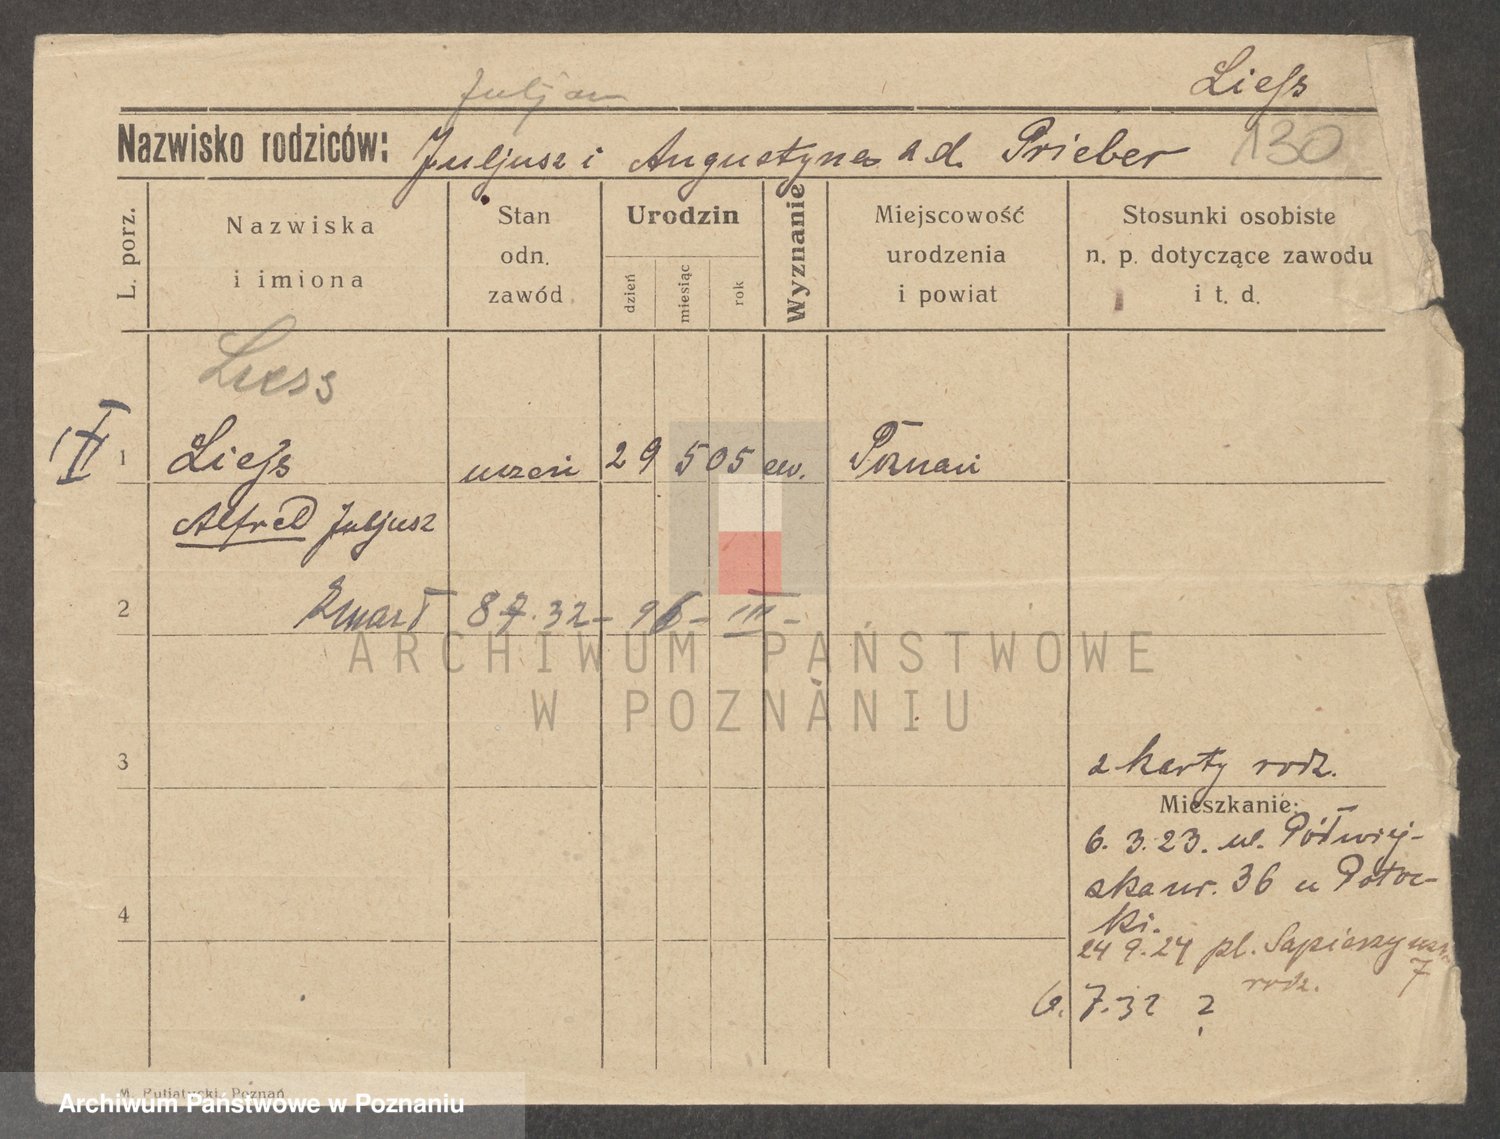 Ließ
Juljan
Nazwisko rodziców: Juljusz i Augustyna a d. Prieber 130
L. porz.
Nazwiska
i imiona
Stan
odn.
zawód
Urodzin
dzień
miesiąc
rok
Wyznanie
Miejscowość
urodzenia
i powiat
Stosunki osobiste
n. p. dotyczące zawodu
i t. d.
Liess
1 Ließ uczeń 29 5 05 ew. Poznań
Alfred Juljusz
2 Zmarł 8 7. 32 - 96 - III -
ARCHIWUM PAŃSTWOWE
W POZNANIU
3 z karty rodz.
Mieszkanie:
6. 3. 23. ul. Półwiej-
ska nr. 36 u Potoc-
4 ki.
24 9. 24 pl. Sapieszyński
rodz. 7
6. 7. 32 ?
M. Putiatycki, Poznań
Archiwum Państwowe w Poznaniu